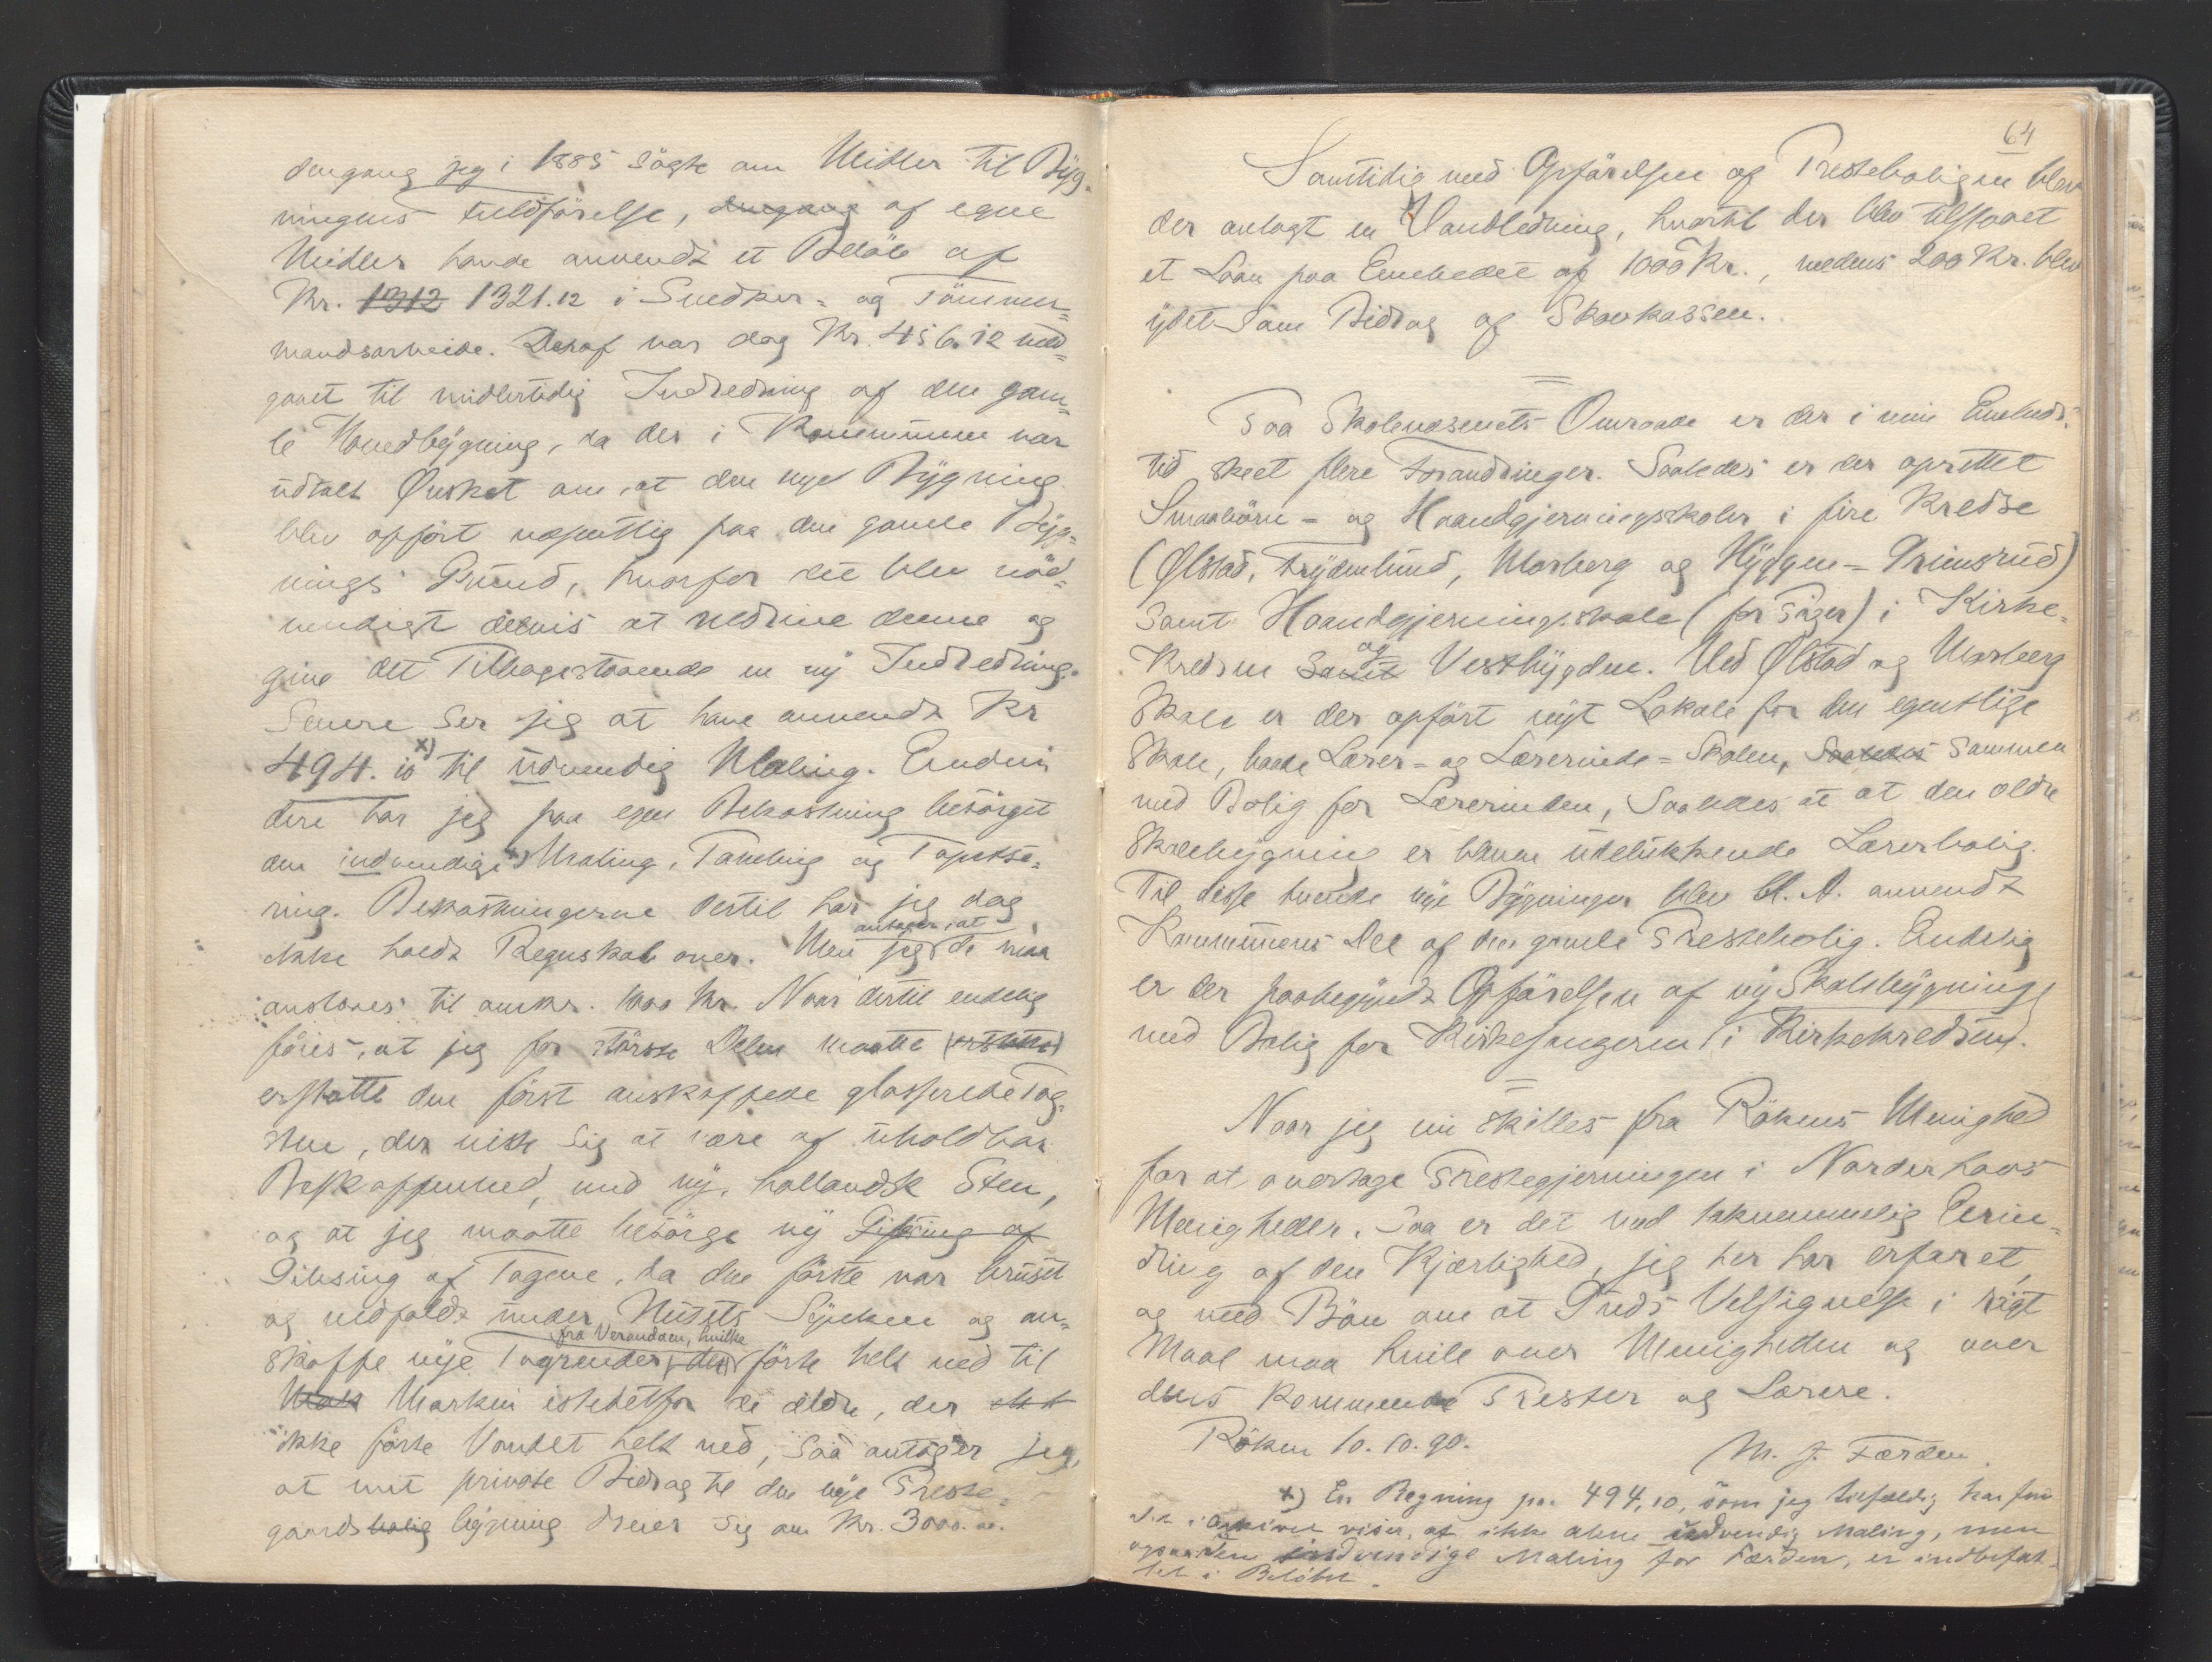 dengang jeg i 1885 søgte om Midler til Byg-
ningens fuldførelse, dengang af egne
Midler havde anvendt et Beløb af
Kr. 1312 1321.12 i Snedker- og Tømmer-
mandsarbeide. Deraf var dog Kr. 456.12 med-
gaaet til midlertidig Indredning af den gam-
le Hovedbygning, da der i Kommunen var
udtalt Ønsket om, at den nye Bygning
blev opført væsentlig paa den gamle Byg-
nings Grund, hvorfor det blev nød-
vendigt delvis at nedrive denne og
give det Tilbagestaaende en ny Indredning.
Senere ser jeg at have anvendt Kr
494.10 x) til udvendig Maling. Endvi
dere har jeg paa egen Bekostning besørget
den indvendige Maling, Paneling og Tapetse-
ring. Bekostningerne dertil har jeg dog
ikke holdt Regnskab over. Men jeg antager, at de maa
anslaaes til omkr. 1000 Kr. Naar dertil endelig
føies, at jeg for største Delen maatte (erstatte)
erstatte den først anskaffede glasserede Tag-
sten, der viste sig at være af uholdbar
Beskaffenhed, med ny, hollandsk Sten,
og at jeg maatte besørge ny Gibsing af
Gibsing af Tagene, da den første var brustet
og nedfaldt under Husets Synken og an-
skaffe nye Tagrender, der fra Verandaen, hvilke førte helt ned til
Mark Marken istedetfor de ældre, der
ikke førte Vandet helt ned, saa antager jeg,
at mit private Bidrag til den nye Preste-
gaardsbolig bygning dreier sig om Kr. 3000.00.
64
Samtidig med Opførelsen af Presteboligen blev
der anlagt en Vandledning, hvortil der blev tilstaaet
et Laan paa Embedet af 1000 Kr., medens 200 Kr. blev
ydet som Bidrag af Skovkassen.
=
Paa Skolevæsenets Omraade er der i min Embeds-
tid skeet flere Forandringer. Saaledes er der oprettet
Smaabørn- og Haandgjerningsskoler i fire Kredse
(Ølstad, Frydenlund, Morberg og Hyggen-Grimsrud)
samt Haandgjerningsskole (for Piger) i Kirke-
Kredsen samt og Vestbygden. Ved Ølstad og Morberg
Skole er der opført nyt Lokale for den egentlige
Skole, baade Lærer- og Lærerinde-Skolen, saaledes sammen
med Bolig for Lærerinden, saaledes at at den ældre
Skolebygning er bleven udelukkende Lærerbolig.
Til disse tvende nye Bygninger blev bl. A. anvendt
Kommunens Del af den gamle Prestebolig. Endelig
er der paabegyndt Opførelsen af ny Skolebygning
med Bolig for Kirkesangeren i Kirkekredsen.
=
Naar jeg nu skilles fra Røkens Menighed
for at overtage Prestegjerningen i Norderhovs
Menigheder, saa er det med taknemmelig Erin-
dring af den Kjærlighed, jeg her har erfaret,
og med Bøn om at Guds Velsignelse i rigt
Maal maa hvile over Menigheden og over
dens kommende Prester og Lærere.
Røken 10.10.90.
M. J. Færden.
x) En Regning pr. 494,10, som jeg tilfældig har fun
det i Arkivet viser, at ikke alene udvendig Maling, men
ogsaa den indvendige Maling for Færden, er indbefat-
tet i Beløbet.